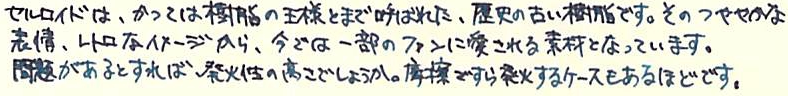 セルロイドは、かつては樹脂の王様とまで呼ばれた、歴史の古い樹脂です。そのつややかな
表情、レトロなイメージから、今では一部のファンに愛される素材となっています。
問題があるとすれば、発火性の高さでしょうか。摩擦ですら発火するケースもあるほどです。